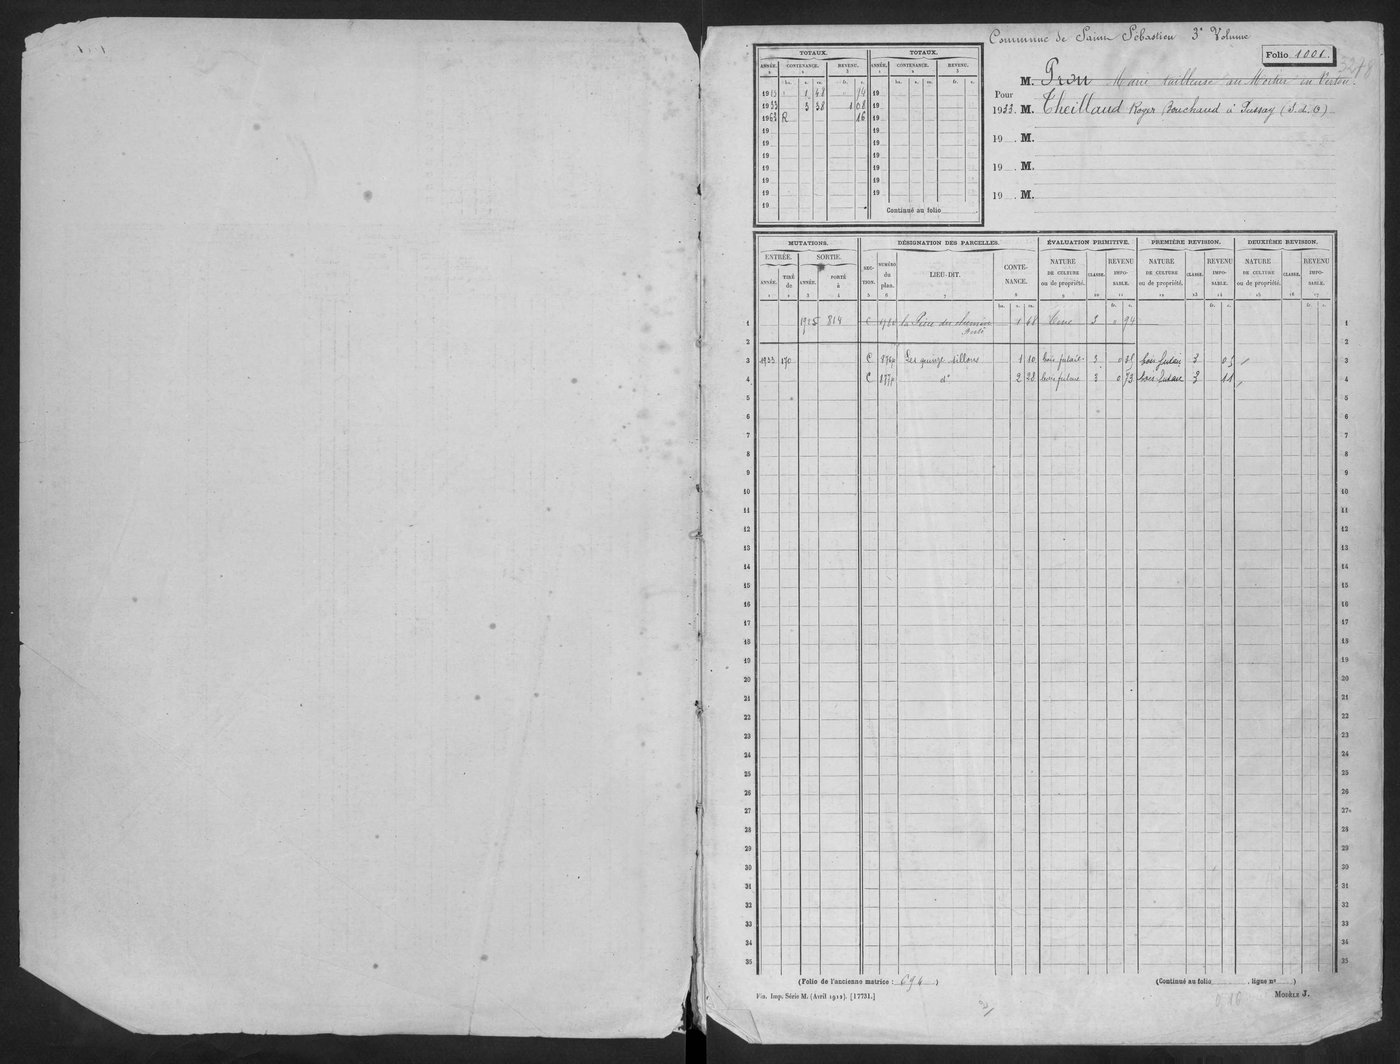 Commune de Saint Sébastien 3e Volume
Folio 1001
3248
M. Prou Marie tailleuse au en Vertou.
Pour
1933. M. Theillaud Roger Bouchaud à Pussay (S. d. O)
19 . M.
19 . M.
19 . M.
TOTAUX. TOTAUX.
ANNÉE. CONTENANCE. REVENU. ANNÉE. CONTENANCE. REVENU.
1 2 3 1 2 3
ha. a. ca. fr. c. ha. a. ca. fr. c.
1913 " 1 48 " 94 19
1933 3 38 1 08 19
1963 R 16 19
19 19
19 19
19 19
19 19
19 19
19 19
19 Continué au folio
MUTATIONS. DÉSIGNATION DES PARCELLES. ÉVALUATION PRIMITIVE. PREMIÈRE REVISION. DEUXIÈME REVISION.
ENTRÉE. SORTIE. SECTION. NUMÉRO du plan. LIEU-DIT. CONTENANCE. NATURE DE CULTURE ou de propriété. CLASSE. REVENU IMPOSABLE. NATURE DE CULTURE ou de propriété. CLASSE. REVENU IMPOSABLE. NATURE DE CULTURE ou de propriété. CLASSE. REVENU IMPOSABLE.
ANNÉE. TIRÉ de ANNÉE. PORTÉ à
1 2 3 4 5 6 7 8 9 10 11 12 13 14 15 16 17
ha. a. ca. fr. c. fr. c. fr. c.
1 1925 814 C la Pièce du chemin 1 48 3 " 94 1
2 2
3 1933 170 C 876p Les quinze sillons 1 10 bois futaie 3 0 35 bois futaie 3 05 3
4 C 877p d° 2 28 bois futaie 3 0 73 bois futaie 3 11 4
5 5
6 6
7 7
8 8
9 9
10 10
11 11
12 12
13 13
14 14
15 15
16 16
17 17
18 18
19 19
20 20
21 21
22 22
23 23
24 24
25 25
26 26
27 27
28 28
29 29
30 30
31 31
32 32
33 33
34 34
35 35
(Folio de l'ancienne matrice : 694 ) (Continué au folio , ligne n° )
Fin. Imp. Série M. (Avril 1912). [17731.] 0.16 MODÈLE J.